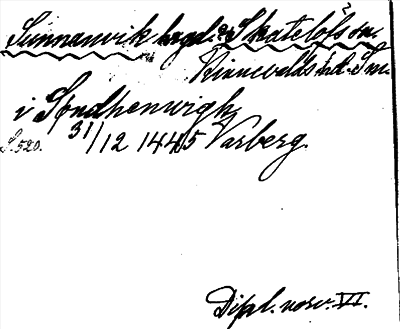 Sunnanvik begd.? Skatelöfs sn.
Kinnevalds hd. Sm.
i Søndhenwigh
S. 520. 31/12 1445 Varberg.
Dipl. norv. VI.